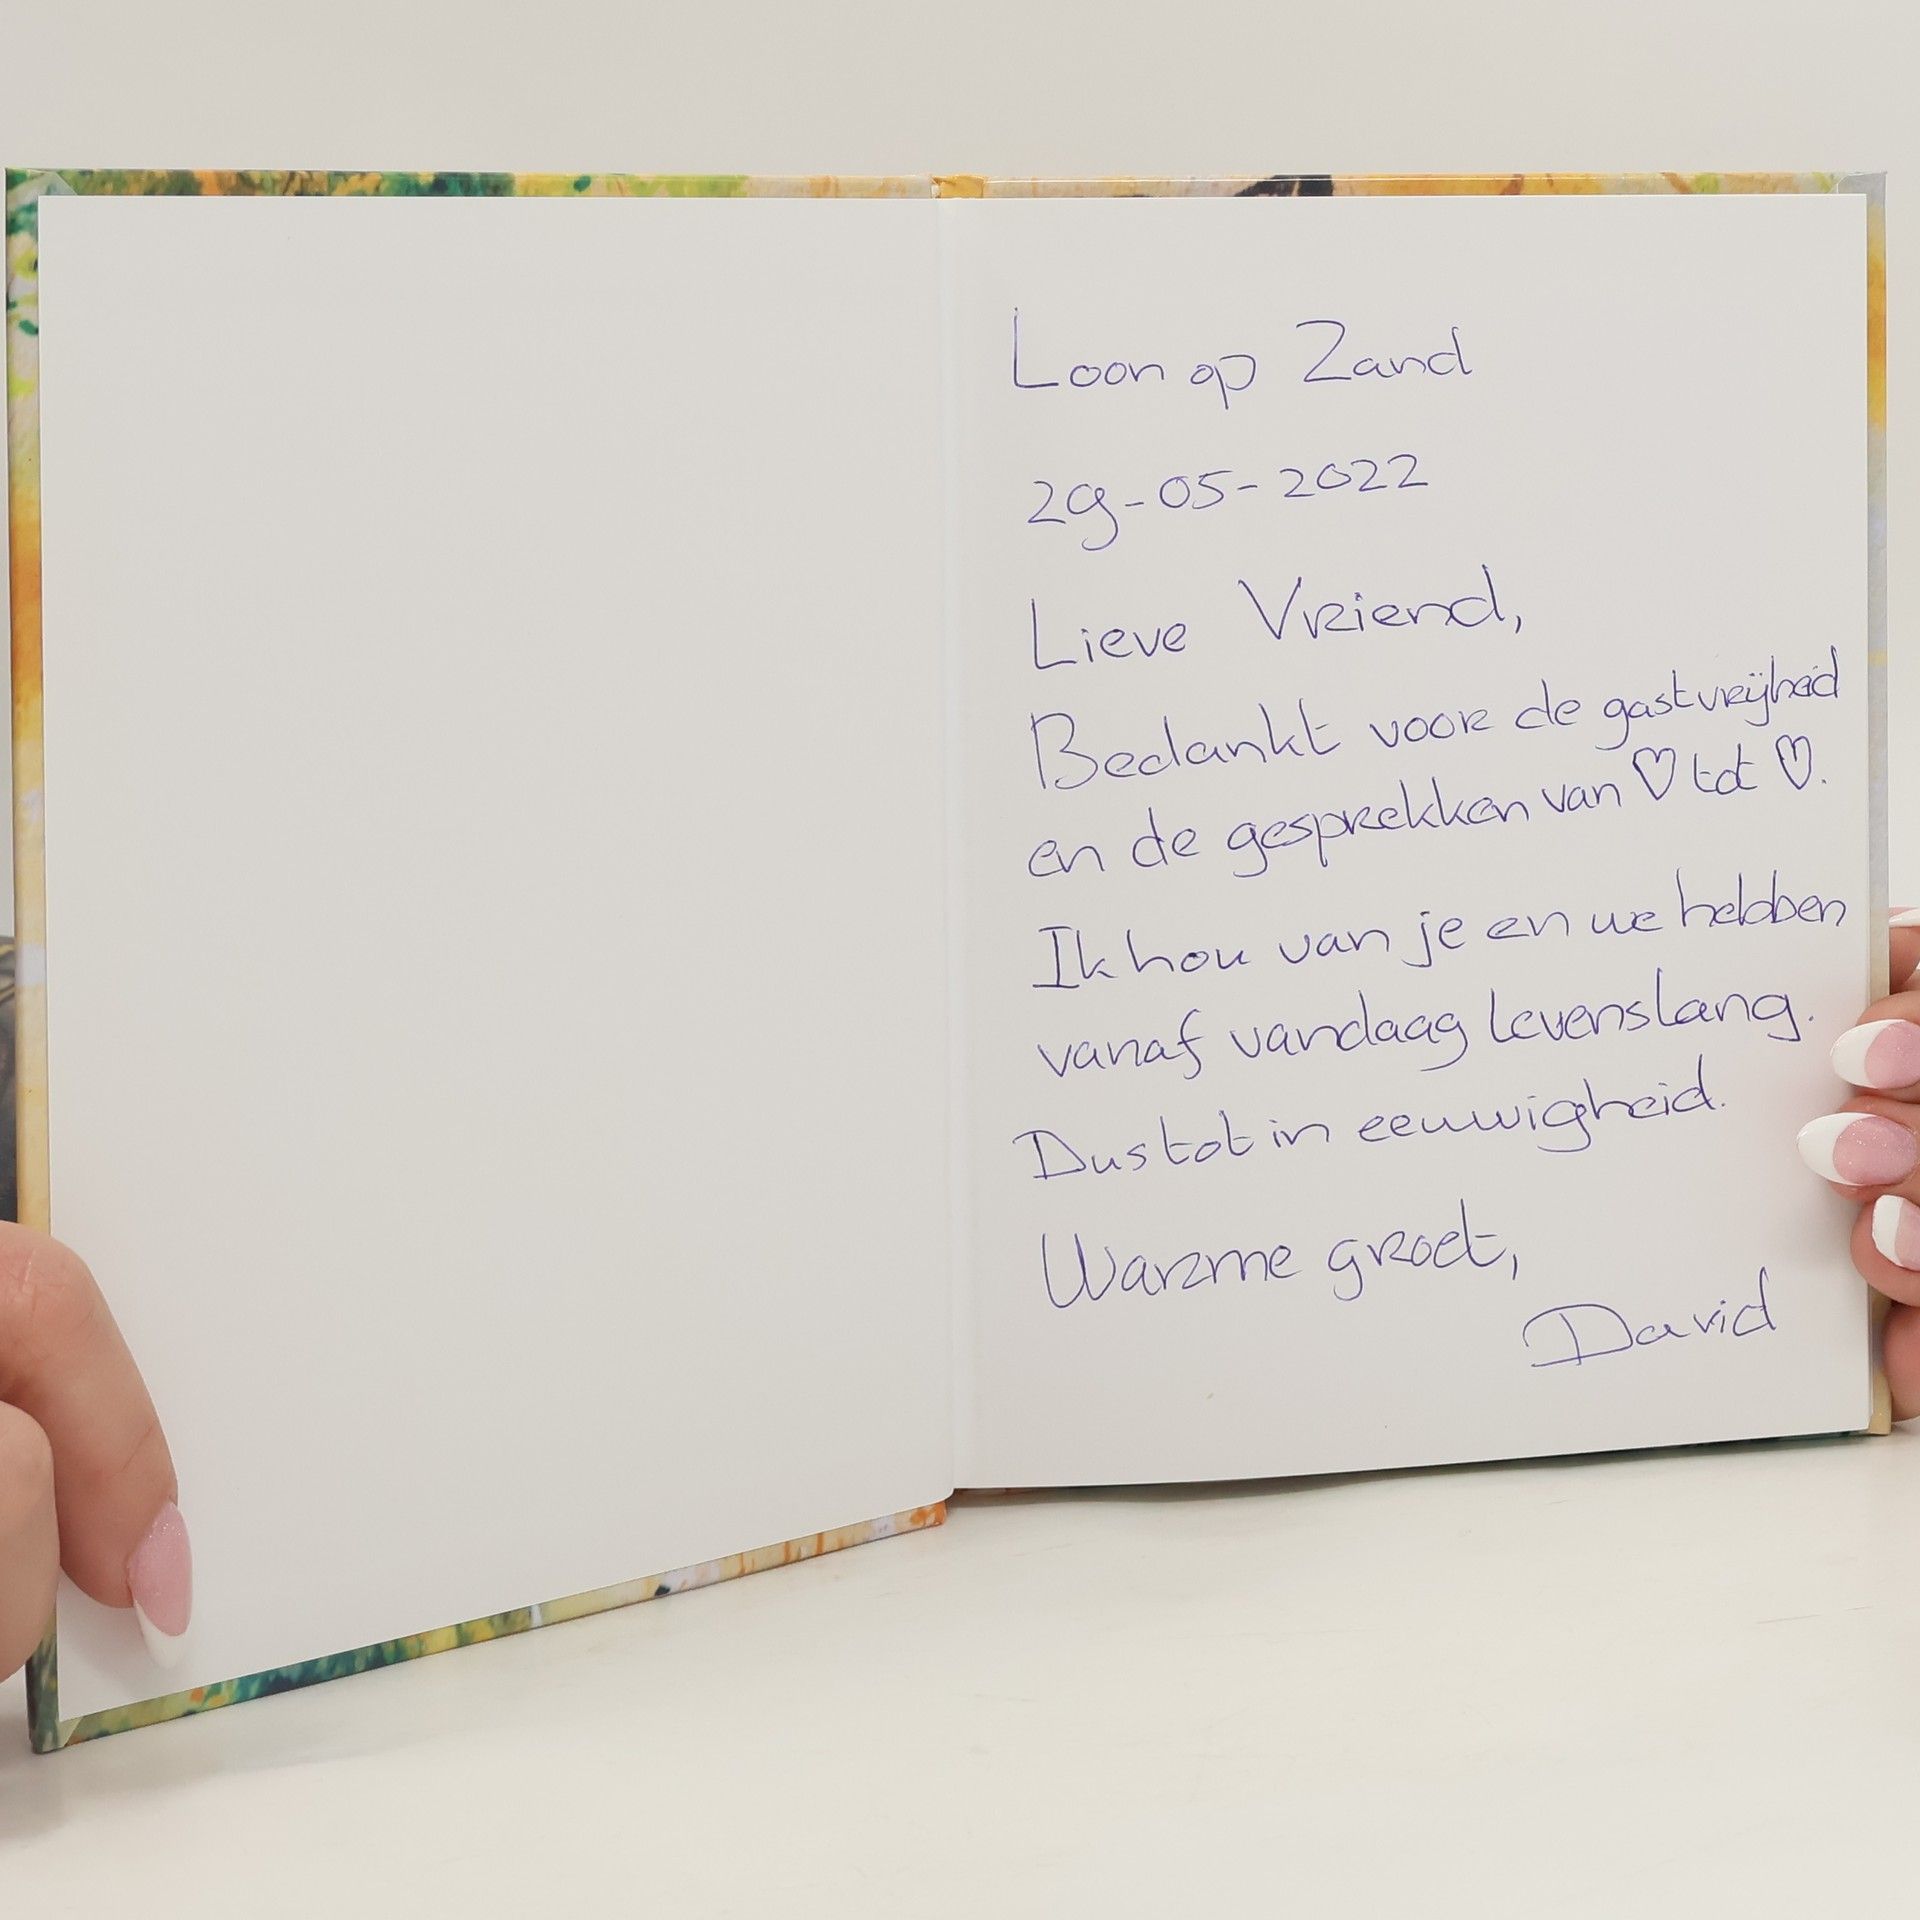 Loon op Zand
29-05-2022
Lieve Vriend,
Bedankt voor de gastvrijheid
en de gesprekken van ♡ tot ♡.
Ik hou van je en we hebben
vanaf vandaag levenslang.
Dus tot in eeuwigheid.
Warme groet,
David